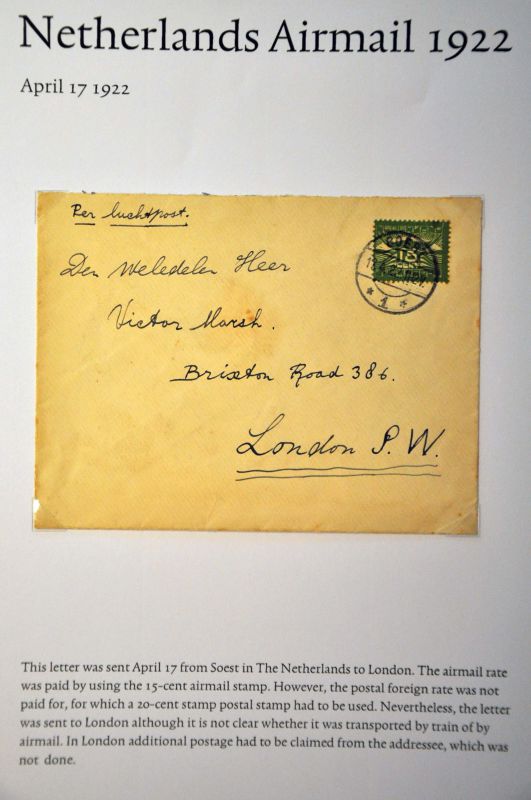 Netherlands Airmail 1922
April 17 1922
Per luchtpost.
Den Weledelen Heer
Victor Marsh.
Brixton Road 386.
London S. W.
SOEST
15
CENT
1
This letter was sent April 17 from Soest in The Netherlands to London. The airmail rate
was paid by using the 15-cent airmail stamp. However, the postal foreign rate was not
paid for, for which a 20-cent stamp postal stamp had to be used. Nevertheless, the letter
was sent to London although it is not clear whether it was transported by train of by
airmail. In London additional postage had to be claimed from the addressee, which was
not done.